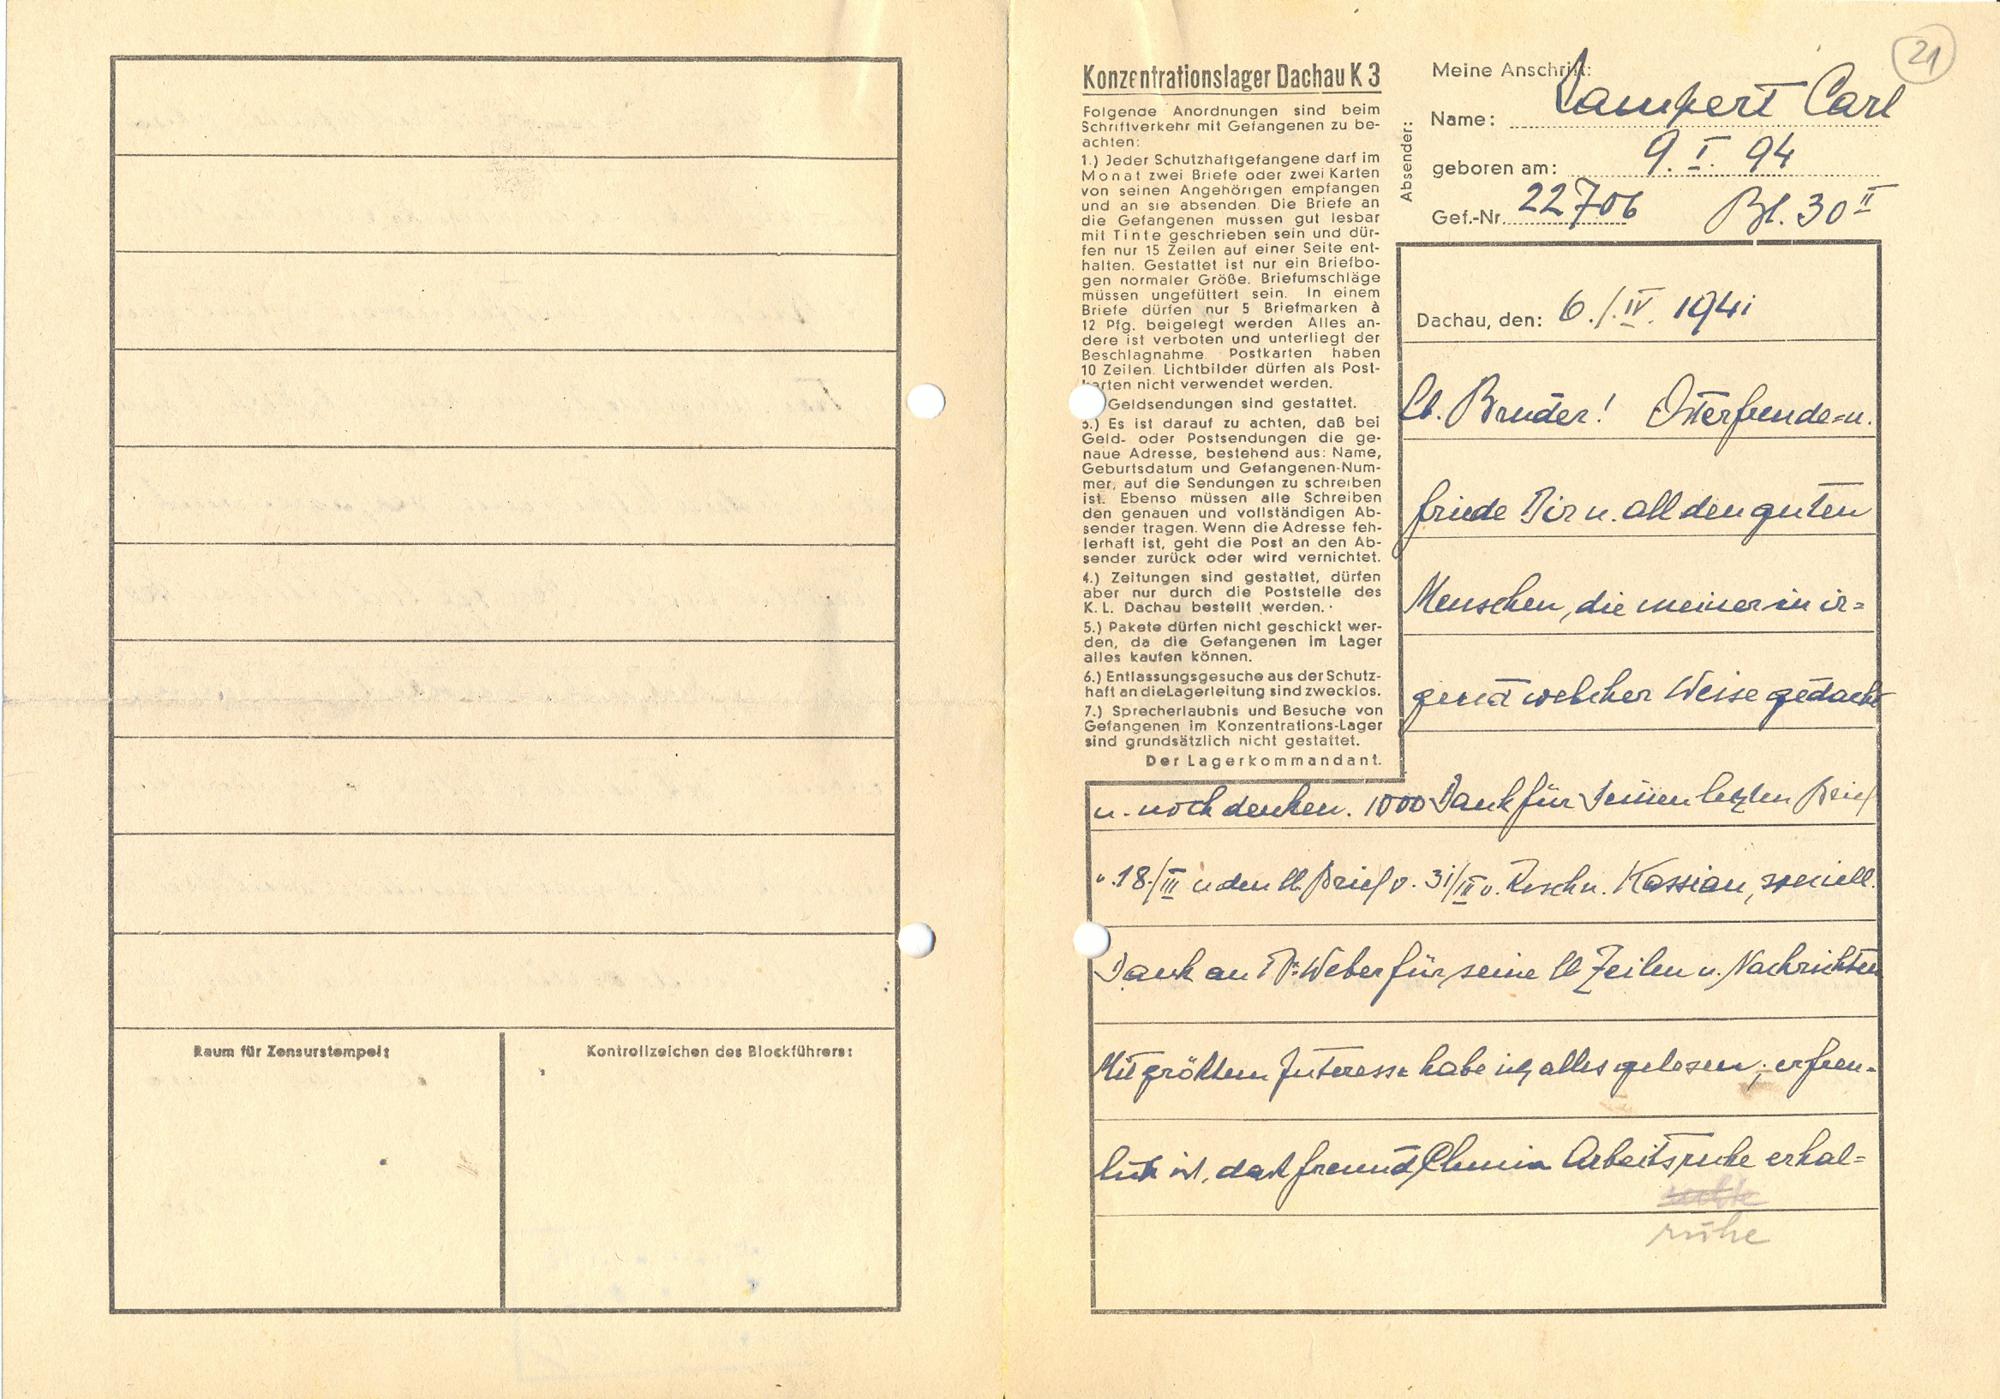 Raum für Zensurstempel:
Kontrollzeichen des Blockführers:
21
Konzentrationslager Dachau K 3
Folgende Anordnungen sind beim
Schriftverkehr mit Gefangenen zu be-
achten:
1.) Jeder Schutzhaftgefangene darf im
Monat zwei Briefe oder zwei Karten
von seinen Angehörigen empfangen
und an sie absenden. Die Briefe an
die Gefangenen müssen gut lesbar
mit Tinte geschrieben sein und dür-
fen nur 15 Zeilen auf einer Seite ent-
halten. Gestattet ist nur ein Briefbo-
gen normaler Größe. Briefumschläge
müssen ungefüttert sein. In einem
Briefe dürfen nur 5 Briefmarken à
12 Pfg. beigelegt werden Alles an-
dere ist verboten und unterliegt der
Beschlagnahme. Postkarten haben
10 Zeilen. Lichtbilder dürfen als Post-
karten nicht verwendet werden.
Geldsendungen sind gestattet.
3.) Es ist darauf zu achten, daß bei
Geld- oder Postsendungen die ge-
naue Adresse, bestehend aus: Name,
Geburtsdatum und Gefangenen-Num-
mer, auf die Sendungen zu schreiben
ist. Ebenso müssen alle Schreiben
den genauen und vollständigen Ab-
sender tragen. Wenn die Adresse feh-
lerhaft ist, geht die Post an den Ab-
sender zurück oder wird vernichtet.
4.) Zeitungen sind gestattet, dürfen
aber nur durch die Poststelle des
K. L. Dachau bestellt werden.
5.) Pakete dürfen nicht geschickt wer-
den, da die Gefangenen im Lager
alles kaufen können.
6.) Entlassungsgesuche aus der Schutz-
haft an die Lagerleitung sind zwecklos.
7.) Sprecherlaubnis und Besuche von
Gefangenen im Konzentrations-Lager
sind grundsätzlich nicht gestattet.
Der Lagerkommandant.
Absender:
Meine Anschrift:
Name: Lampert Carl
geboren am: 9. I. 94
Gef.-Nr. 22706 Bl. 30 II
Dachau, den: 6./IV. 1941
Lb. Bruder! Osterfreude u.
friede Dir u. all den guten
Menschen, die meiner in ir=
gend welcher Weise gedacht
u. noch denken. 1000 Dank für Deinen letzten Brief
v. 18./III u den lb. Brief v. 31/III v. Kassian, speziell
Dank an Weber für seine lb Zeilen u. Nachrichten
Mit größtem Interesse habe ich alles gelesen; erfreu-
lich ist, daß freund Arbeitsruhe erhal=
ruhe